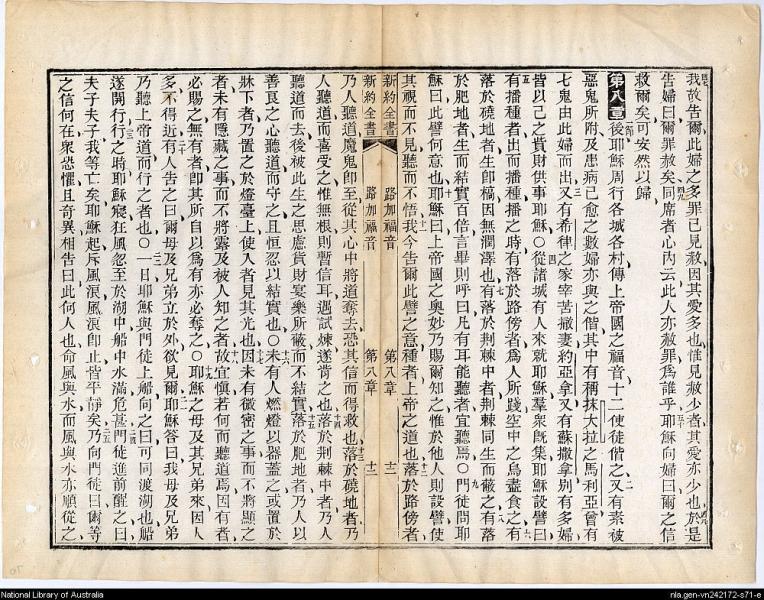 我故告爾此婦之多罪已見赦因其愛多也惟見赦少者其愛亦少也於是
告婦曰爾罪赦矣同席者心內云此人亦赦罪爲誰乎耶穌向婦曰爾之信
救爾矣可安然以歸
第八章 後耶穌周行各城各村傳上帝國之福音十二使徒偕之又有素被
惡鬼所附及患病已愈之數婦亦與之偕其中有稱抹大拉之馬利亞曾有
七鬼由此婦而出又有希律之家宰苦撒妻約亞拿又有蘇撒拿別有多婦
皆以己之貲財供事耶穌○從諸城有人來就耶穌羣衆旣集耶穌設譬曰
有播種者出而播種播種之時有落於路傍者爲人所踐空中之鳥盡食之有
落於磽地者生卽槁因無潤澤也有落於荊棘中者荊棘同生而蔽之有落
於肥地者生而結實百倍言畢則呼曰凡有耳能聽者宜聽焉○門徒問耶
穌曰此譬何意也耶穌曰上帝國之奧妙乃賜爾知之惟於他人則設譬使
其視而不見聽而不悟我今告爾此譬之意種者上帝之道也落於路傍者
新約全書 路加福音 第八章 十二
新約全書 路加福音 第八章 十二
乃人聽道魔鬼卽至從其心中將道奪去恐其信而得救也落於磽地者乃
人聽道而喜受之惟無根則暫信耳遇試煉遂背之也落於荊棘中者乃人
聽道而去後被此生之思慮貨財宴樂所蔽而不結實落於肥地者乃人以
善良之心聽道而守之且恒忍以結實也○未有人燃燈以器蓋之或置於
牀下者乃置之於燈臺上使入者見其光也因未有微密之事而不將顯之
者未有隱藏之事而不將露及被人知之者故宜慎若何而聽道焉因有者
必賜之無有者卽其所自以爲有亦必奪之○耶穌之母及其兄弟來因人
多不得近有人告之曰爾母及兄弟立於外欲見爾耶穌答曰我母及兄弟
乃聽上帝道而行之者也○一日耶穌與門徒上船向之曰可同渡湖也船
遂開行行之時耶穌寢狂風忽至於湖中船中水滿危甚門徒進前醒之曰
夫子夫子我等亡矣耶穌起斥風浪風浪卽止皆平靜矣乃向門徒曰爾等
之信何在衆恐懼且奇異相告曰此何人也命風與水而風與水亦順從之
National Library of Australia
nla.gen-vn242172-s71-e